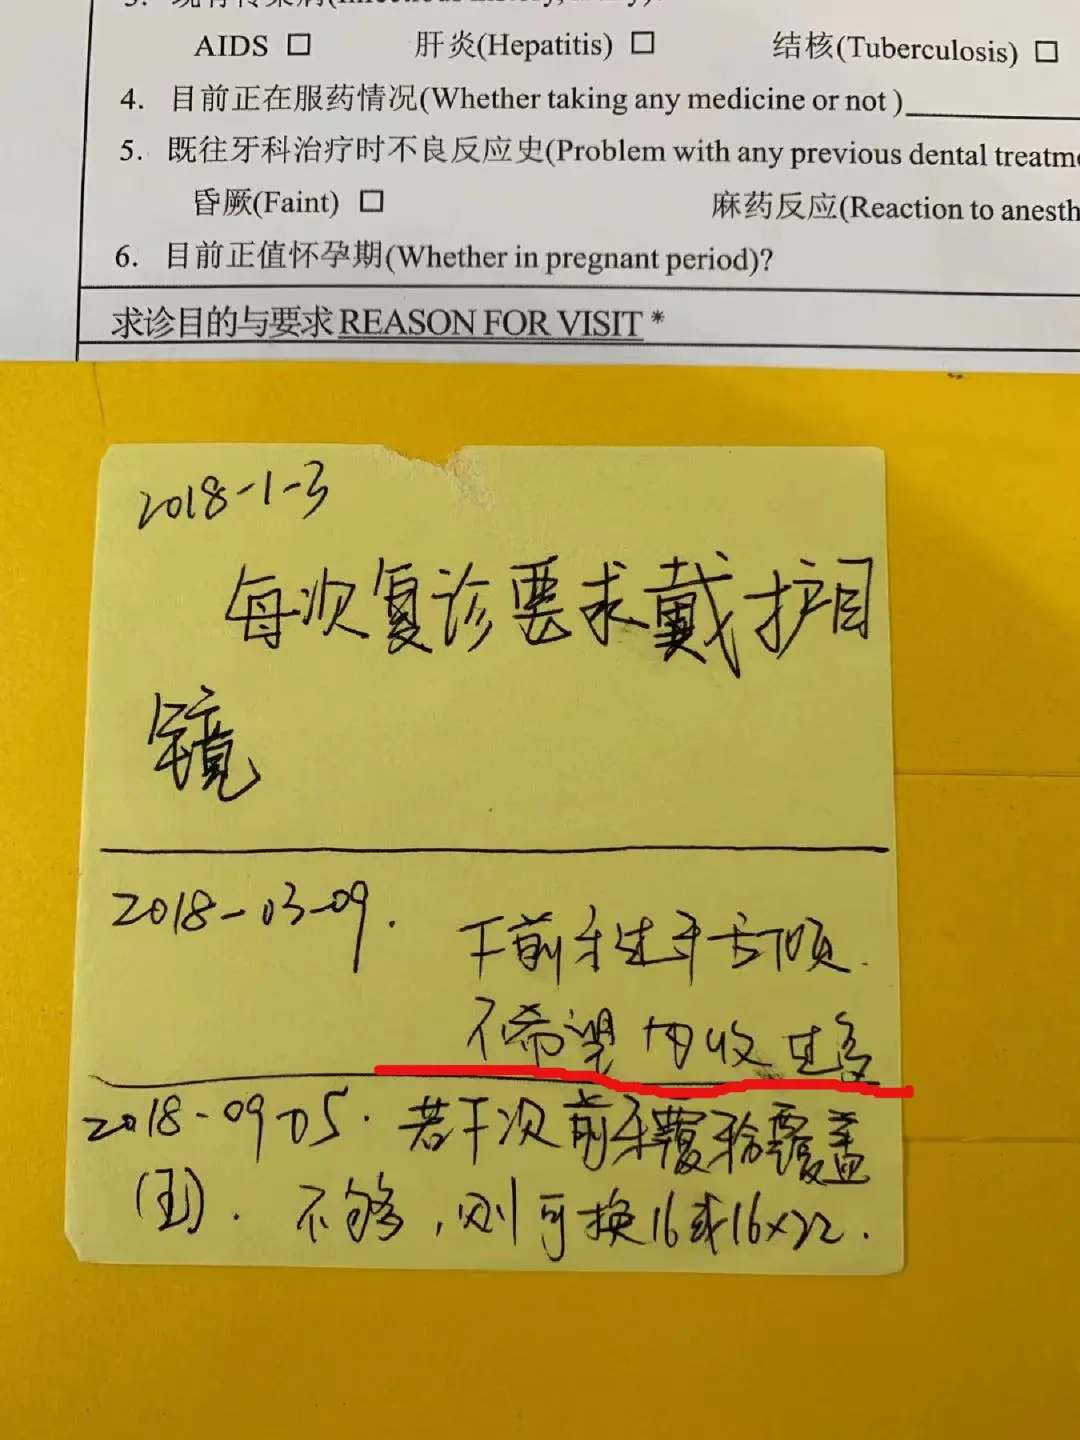 AIDS □ 肝炎(Hepatitis) □ 结核(Tuberculosis) □
4. 目前正在服药情况(Whether taking any medicine or not )
5. 既往牙科治疗时不良反应史(Problem with any previous dental treatm
昏厥(Faint) □ 麻药反应(Reaction to anesth
6. 目前正值怀孕期(Whether in pregnant period)?
求诊目的与要求 REASON FOR VISIT *
2018-1-3
每次复诊要求戴护目
镜
2018-03-09. 下前牙
不希望内收
2018-09-05. 若下次前牙覆牙合覆盖
不够,则可换16或16×22.